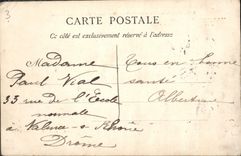 3
CARTE POSTALE
Ce côté est exclusivement réservé à l'adresse
Madame
Paul Vial
33 rue de l'Ecole
normale
à Valence s Rhône
Drôme
Tous en bonne
santé
Albertine